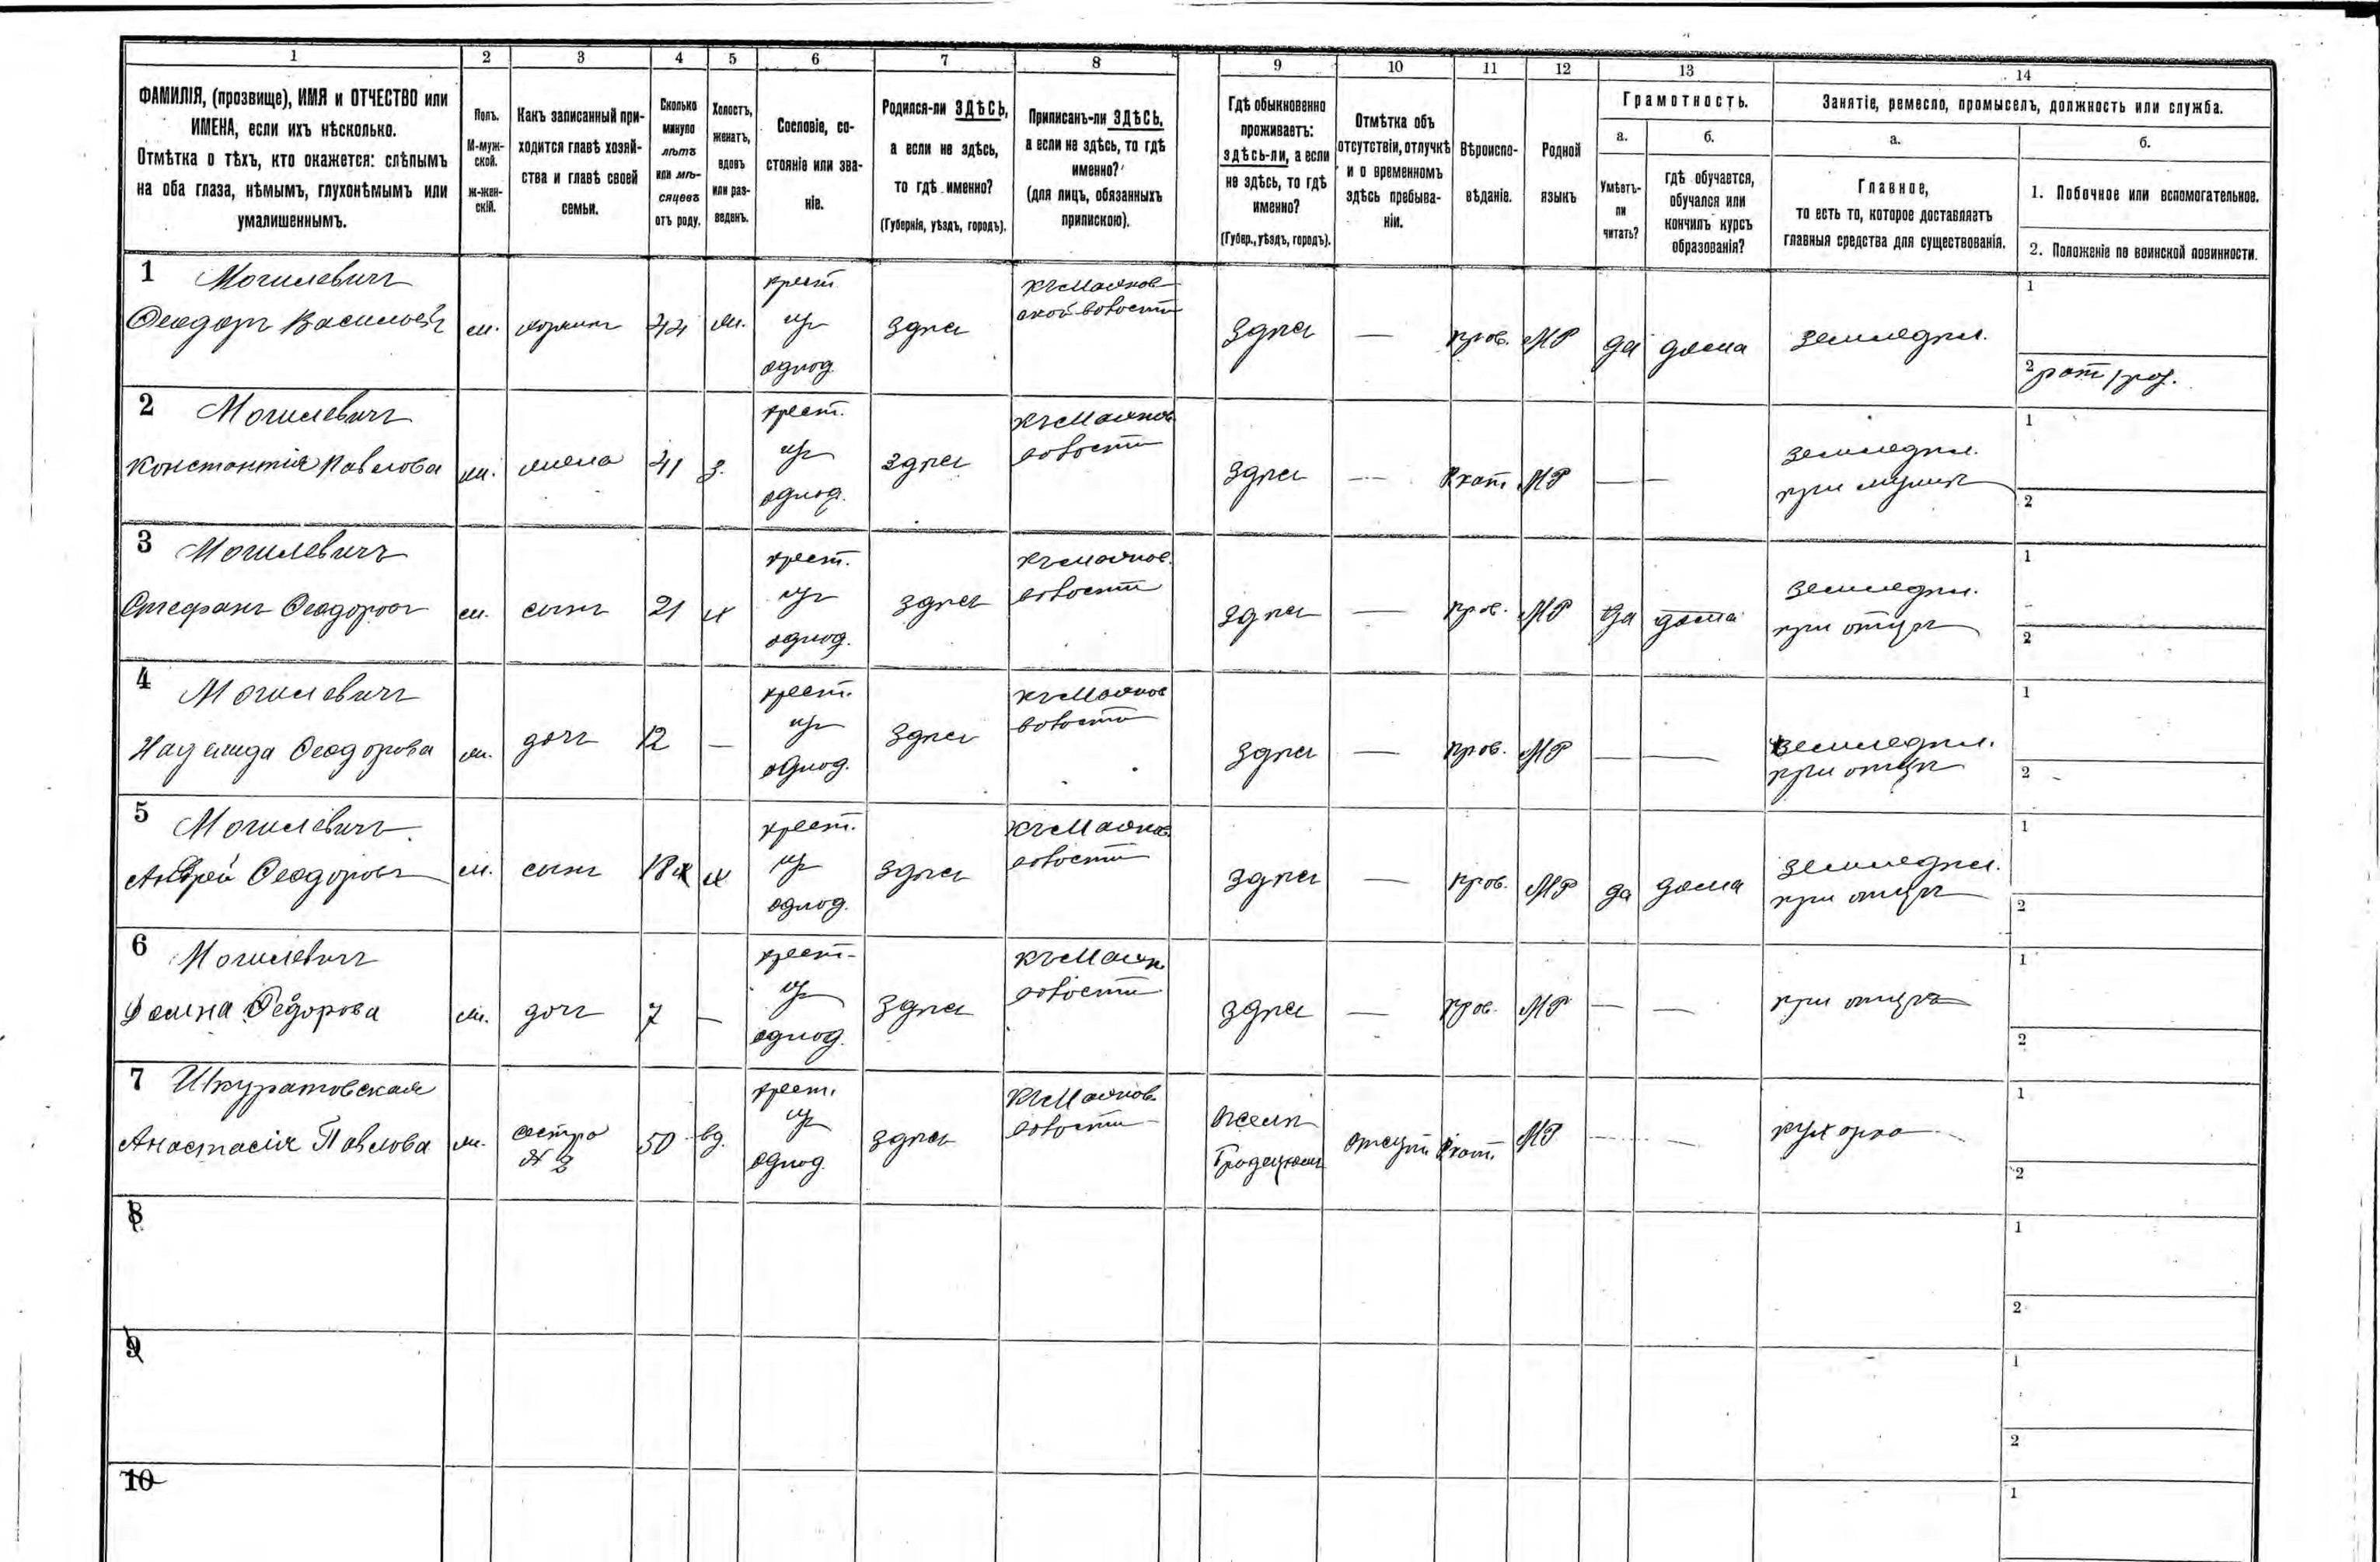 1 2 3 4 5 6 7 8 9 10 11 12 13 14
ФАМИЛІЯ, (прозвище), ИМЯ и ОТЧЕСТВО или
ИМЕНА, если ихъ нѣсколько.
Отмѣтка о тѣхъ, кто окажется: слѣпымъ
на оба глаза, нѣмымъ, глухонѣмымъ или
умалишеннымъ.
Полъ.
М-муж-
ской.
ж-жен-
скій.
Какъ записанный при-
ходится главѣ хозяй-
ства и главѣ своей
семьи.
Сколько
минуло
лѣтъ
или мѣ-
сяцевъ
отъ роду.
Холостъ,
женатъ,
вдовъ
или раз-
веденъ.
Сословіе, со-
стояніе или зва-
ніе.
Родился-ли ЗДѢСЬ,
а если не здѣсь,
то гдѣ именно?
(Губернія, уѣздъ, городъ).
Приписанъ-ли ЗДѢСЬ,
а если не здѣсь, то гдѣ
именно?
(для лицъ, обязанныхъ
припискою).
Гдѣ обыкновенно
проживаетъ:
здѣсь-ли, а если
не здѣсь, то гдѣ
именно?
(Губер., уѣздъ, городъ).
Отмѣтка объ
отсутствіи, отлучкѣ
и о временномъ
здѣсь пребыва-
ніи.
Вѣроиспо-
вѣданіе.
Родной
языкъ
Грамотность.
а.
Умѣетъ-
ли
читать?
б.
гдѣ обучается,
обучался или
кончилъ курсъ
образованія?
Занятіе, ремесло, промыселъ, должность или служба.
а.
Главное,
то есть то, которое доставляетъ
главныя средства для существованія.
б.
1. Побочное или вспомогательное.
2. Положеніе по воинской повинности.
1 Могилевичъ крест. 1
Ѳеодоръ м. 44 изъ здѣсь здѣсь — прав. МР да дома земледѣл.
однод. 2
2 Могилевичъ крест. 1
Константія Павлова жена 41 з. изъ здѣсь волости здѣсь — Р. кат. МР — — земледѣл.
однод. при мужѣ 2
3 Могилевичъ крест. 1
Стефанъ Ѳеодоровъ м. сынъ 21 х изъ здѣсь волости здѣсь — прав. МР да дома земледѣл.
однод. при отцѣ 2
4 Могилевичъ крест. 1
Надежда Ѳеодорова дочь 12 — изъ здѣсь волости здѣсь — прав. МР — — земледѣл.
однод. при отцѣ 2
5 Могилевичъ крест. 1
Андрей Ѳеодоровъ м. сынъ 18 х изъ здѣсь волости здѣсь — прав. МР да дома земледѣл.
однод. при отцѣ 2
6 Могилевичъ крест. 1
Ѳедорова дочь 7 — изъ здѣсь волости здѣсь — прав. МР — — при отцѣ
однод. 2
7 Шкуратовская крест. 1
Анастасія Павлова сестра 50 вд. изъ здѣсь волости Р. кат. МР — — кухарка
№ 2 однод. 2
8 1
2
9 1
2
10 1